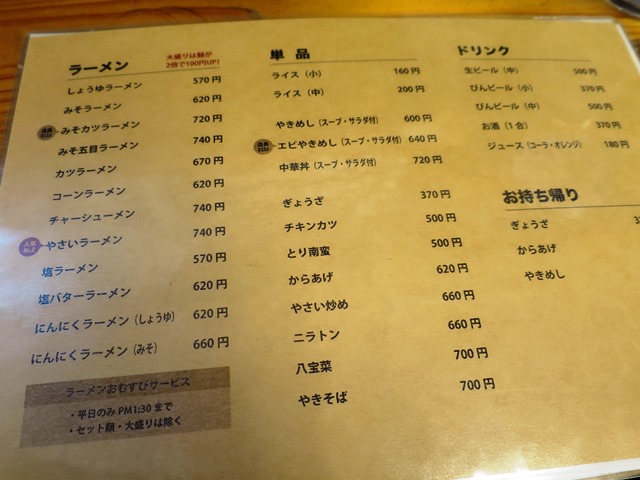 ラーメン
大盛りは麺が
2倍で100円UP!
しょうゆラーメン 570円
みそラーメン 620円
みそカツラーメン 720円
みそ五目ラーメン 740円
カツラーメン 670円
コーンラーメン 620円
チャーシューメン 740円
人気
やさいラーメン 740円
塩ラーメン 570円
塩バターラーメン 620円
にんにくラーメン(しょうゆ) 620円
にんにくラーメン(みそ) 660円
ラーメンおむすびサービス
・平日のみPM1:30まで
・セット類・大盛りは除く
単品
ライス(小) 160円
ライス(中) 200円
やきめし(スープ・サラダ付) 600円
エビやきめし(スープ・サラダ付) 640円
中華丼(スープ・サラダ付) 720円
ぎょうざ 370円
チキンカツ 500円
とり南蛮 500円
からあげ 620円
やさい炒め 660円
ニラトン 660円
八宝菜 700円
やきそば 700円
ドリンク
生ビール(中) 500円
びんビール(小) 370円
びんビール(中) 500円
お酒(1合) 370円
ジュース(コーラ・オレンジ) 180円
お持ち帰り
ぎょうざ
からあげ
やきめし